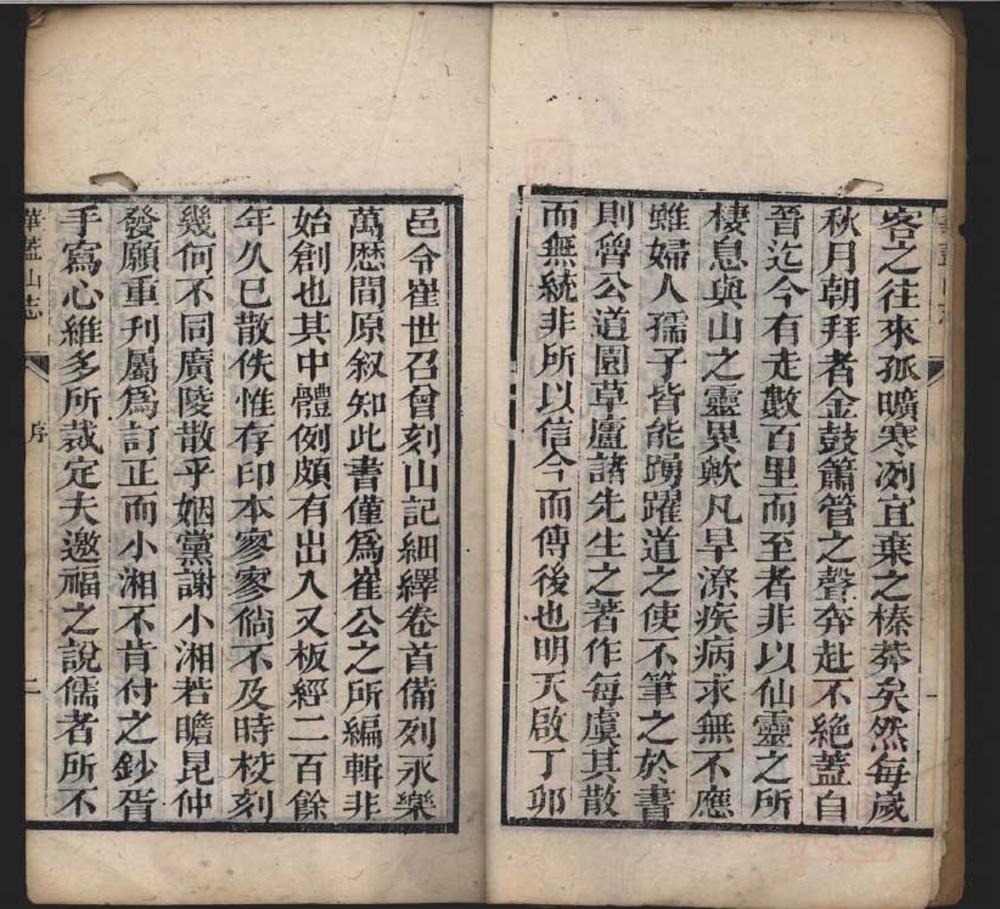 客之往來孤曠寒冽宜棄之榛莽矣然每歲
秋月朝拜者金鼓簫管之聲奔赴不絕蓋自
晉迄今有走數百里而至者非以仙靈之所
棲息與山之靈異歟凡旱潦疾病求無不應
雖婦人孺子皆能踴躍道之使不筆之於書
則魯公道園草廬諸先生之著作每虞其散
而無統非所以信今而傳後也明天啟丁卯
邑令崔世召曾刻山記細繹卷首備列永樂
萬厯間原叙知此書僅爲崔公之所編輯非
始創也其中體例頗有出入又板經二百餘
年久已散佚惟存印本寥寥倘不及時校刻
幾何不同廣陵散乎姻黨謝小湘若瞻昆仲
發願重刊屬爲訂正而小湘不肯付之鈔胥
手寫心維多所裁定夫邀福之說儒者所不
華蓋山志
序
二